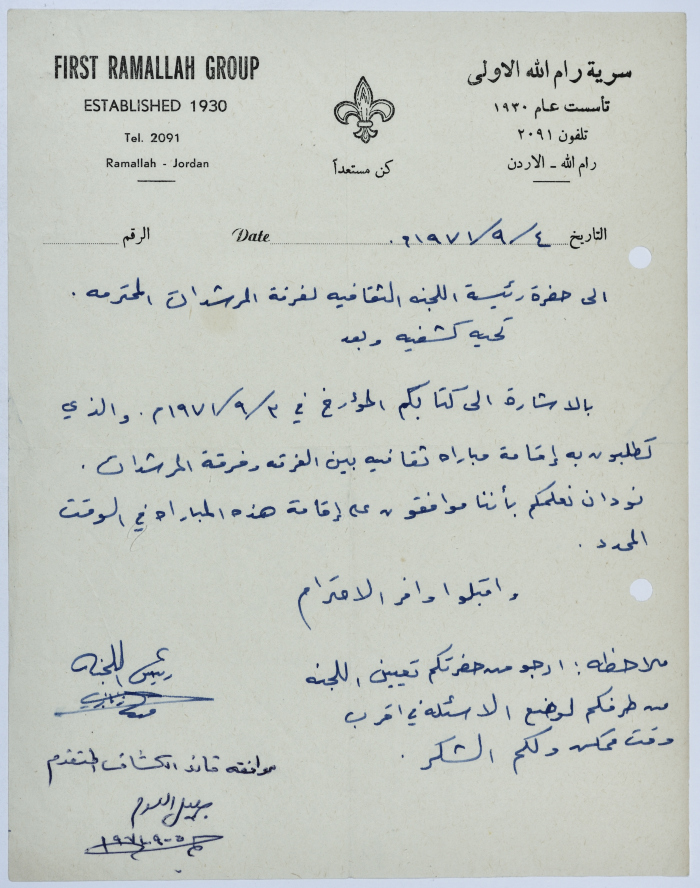 FIRST RAMALLAH GROUP
ESTABLISHED 1930
Tel. 2091
Ramallah - Jordan
سرية رام الله الاولى
تأسست عام ١٩٣٠
تلفون ٢٠٩١
رام الله - الاردن
كن مستعداً
التاريخ ٤/٩/١٩٧١م. Date الرقم
الى حضرة رئيسة اللجنه الثقافيه لفرقة المرشدات المحترمه .
تحيه كشفيه وبعد
بالاشارة الى كتابكم المؤرخ في ٣/٩/١٩٧١م. والذي
تطلبون به إقامة مباراه ثقافيه بين الفرقه وفرقة المرشدات .
نود ان نعلمكم بأننا موافقون على إقامة هذه المباراه في الوقت
المحدد .
واقبلوا وافر الاحترام
ملاحظه : ارجو من حضرتكم تعيين اللجنه
من طرفكم لوضع الاسئله في اقرب
وقت ممكن ولكم الشكر .
رئيس اللجنه
موافقه قائد الكشاف المتقدم
١٩٧١-٩-٥